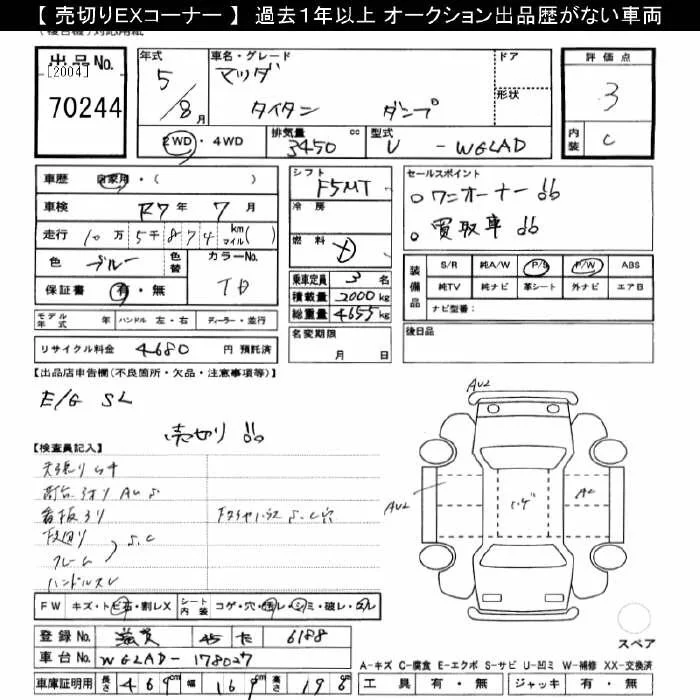 【 売切りEXコーナー 】 過去1年以上 オークション出品歴がない車両
出品No.
[2004]
70244
年式
5/8月
車名・グレード
マツダ
タイタン ダンプ
ドア
形状
評価点
3
内装
C
2WD・4WD
排気量 3450 cc
型式 U - WGLAD
車歴 自家用・( )
車検 R7年 7月
走行 10万 5千 8 7 4 km マイル( )
色 ブルー
色替
カラーNo. TD
保証書 有・無
モデル年式 年 ハンドル 左・右 ディーラー・並行
リサイクル料金 4680 円 預託済
シフト F5MT
冷房
燃料 D
乗車定員 3 名
積載量 2000 kg
総重量 4655 kg
名変期限 月 日
セールスポイント
。ワンオーナー
。買取車
装備品
S/R 純A/W P/S P/W ABS
純TV 純ナビ 革シート 外ナビ エアB
ナビ型番:
後日品
【出品店申告欄(不良箇所・欠品・注意事項等)】
E/G SL
売切り
【検査員記入】
看板跡り
フレーム
ハンドルスレ
FW キズ・トビ石・割レX シート内装 コゲ・穴・汚レ・シミ・破レ・スレ
登録No. 滋賀 45 た 6188
車台No. WGLAD-178027
車庫証明用 長さ 469 幅 169 高さ 196
AU2
AU2
AU
スペア
A-キズ C-腐食 E-エクボ S-サビ U-凹ミ W-補修 XX-交換済
工具 有・無 ジャッキ 有・無